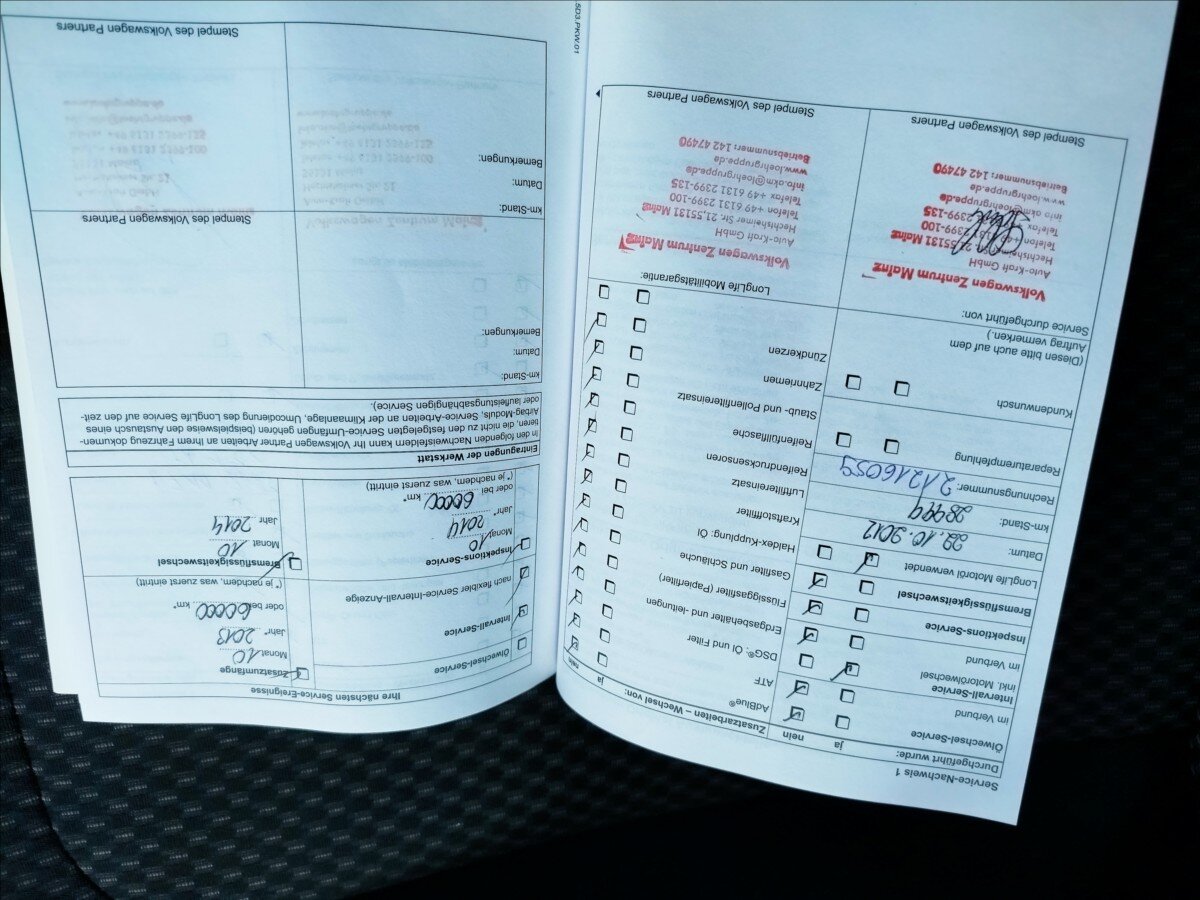 Service-Nachweis 1
Durchgeführt wurde:
ja
nein
Ölwechsel-Service
im Verbund
Intervall-Service
inkl. Motorölwechsel
im Verbund
Inspektions-Service
Bremsflüssigkeitswechsel
LongLife Motoröl verwendet
Datum: 22.10.2012
km-Stand:
Rechnungsnummer:
Reparaturempfehlung
Kundenwunsch
(Diesen bitte auch auf dem
Auftrag vermerken.)
Service durchgeführt von:
Volkswagen Zentrum Mainz
Auto-Kraft GmbH
Hechtsheimer Str. 21, 55131 Mainz
Telefon
Telefax
info.akm@loehrgruppe.de
www.loehrgruppe.de
Betriebsnummer: 142 47490
Stempel des Volkswagen Partners
Zusatzarbeiten – Wechsel von:
ja
nein
AdBlue®
ATF
DSG®: Öl und Filter
Erdgasbehälter und -leitungen
Flüssiggasfilter (Papierfilter)
Gasfilter und Schläuche
Haldex-Kupplung: Öl
Kraftstofffilter
Luftfiltereinsatz
Reifendrucksensoren
Reifenfüllflasche
Staub- und Pollenfiltereinsatz
Zahnriemen
Zündkerzen
LongLife Mobilitätsgarantie:
Volkswagen Zentrum Mainz
Auto-Kraft GmbH
Hechtsheimer Str. 21, 55131 Mainz
Telefon +49 6131 2399-100
Telefax +49 6131 2399-135
info.akm@loehrgruppe.de
www.loehrgruppe.de
Betriebsnummer: 142 47490
Stempel des Volkswagen Partners
Ihre nächsten Service-Ereignisse
Ölwechsel-Service
Intervall-Service
nach flexibler Service-Intervall-Anzeige
Inspektions-Service
Monat 10
Jahr* 2014
oder bei 60000 km*
(* je nachdem, was zuerst eintritt)
Zusatzumfänge
Monat 10
Jahr* 2013
oder bei 60000 km*
(* je nachdem, was zuerst eintritt)
Bremsflüssigkeitswechsel
Monat 10
Jahr 2014
Eintragungen der Werkstatt
In den folgenden Nachweisfeldern kann Ihr Volkswagen Partner Arbeiten an Ihrem Fahrzeug dokumen-
tieren, die nicht zu den festgelegten Service-Umfängen gehören (beispielsweise den Austausch eines
Airbag-Moduls, Service-Arbeiten an der Klimaanlage, Umcodierung des LongLife Service auf den zeit-
oder laufleistungsabhängigen Service).
km-Stand:
Datum:
Bemerkungen:
Stempel des Volkswagen Partners
km-Stand:
Datum:
Bemerkungen:
Stempel des Volkswagen Partners